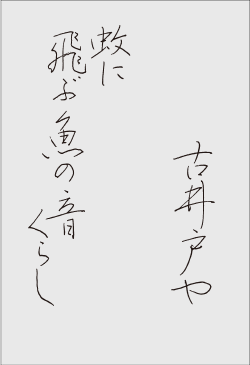 古井戸や
蚊に
飛ぶ魚の音
くらし